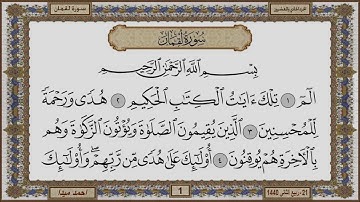 سورة لقمان
سُورَةُ لُقْمَانَ
بِسْمِ اللَّهِ الرَّحْمَٰنِ الرَّحِيمِ
الٓمٓ ١ تِلْكَ ءَايَٰتُ الْكِتَٰبِ الْحَكِيمِ ٢ هُدًى وَرَحْمَةً
لِّلْمُحْسِنِينَ ٣ الَّذِينَ يُقِيمُونَ الصَّلَوٰةَ وَيُؤْتُونَ الزَّكَوٰةَ وَهُم
بِالْءَاخِرَةِ هُمْ يُوقِنُونَ ٤ أُوْلَٰٓئِكَ عَلَىٰ هُدًى مِّن رَّبِّهِمْ ۖ وَأُوْلَٰٓئِكَ
21- ربيع ثاني 1440
1